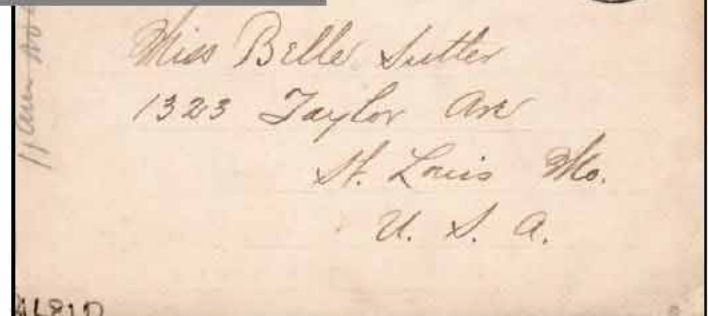 Miss Belle Sutter
1323 Taylor Ave
St. Louis Mo.
U. S. A.